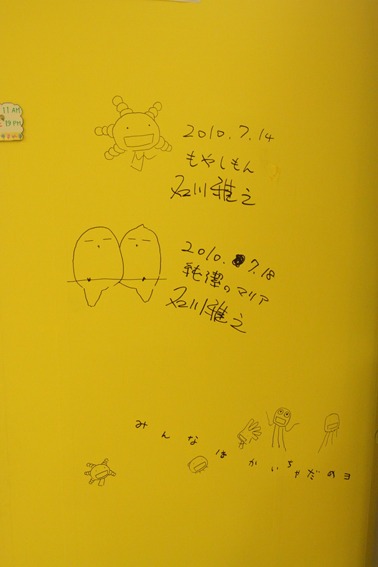 11 AM
19 PM
2010.7.14
もやしもん
石川雅之
2010. 7.18
純潔のマリア
石川雅之
みんなはかいちゃだめヨ